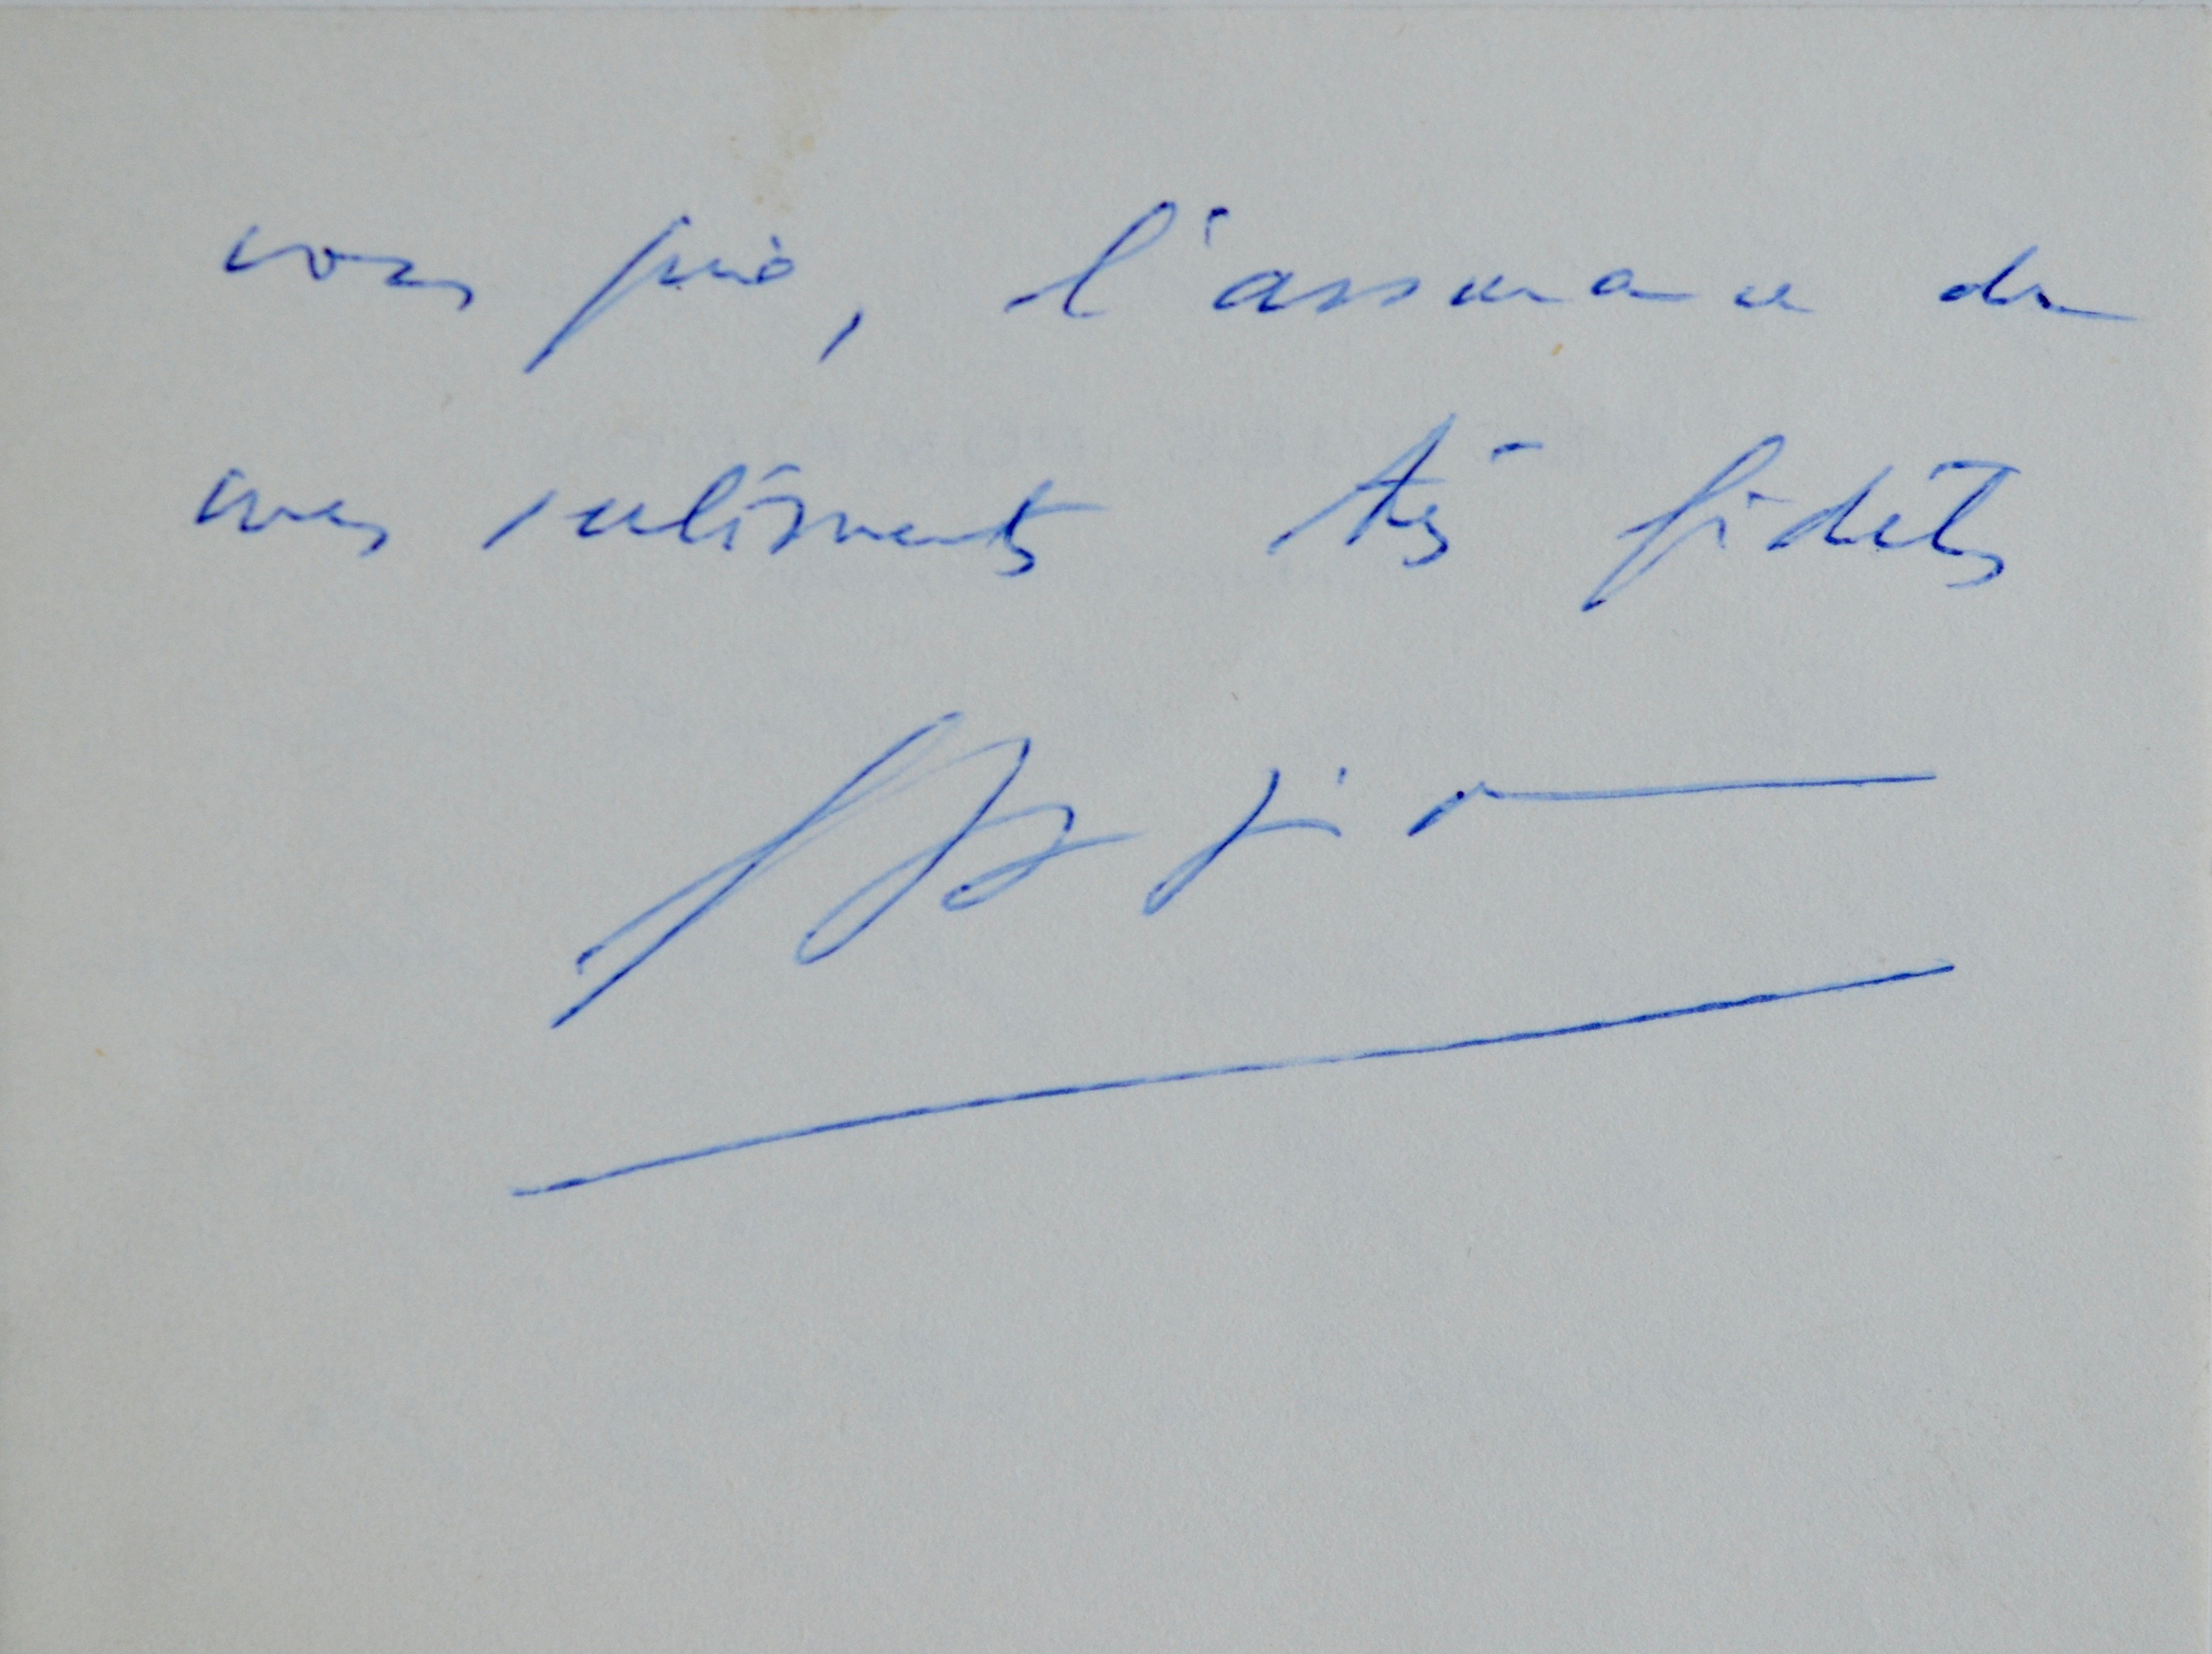 vous prie, l'assurance de
mes sentiments très fidèles